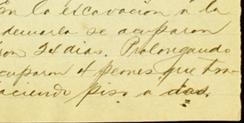 En la escavación á la
demarla se ocuparon
son 24 dias. Prolongando
cuparon 4 peones que tra
aciendo piso a dos.